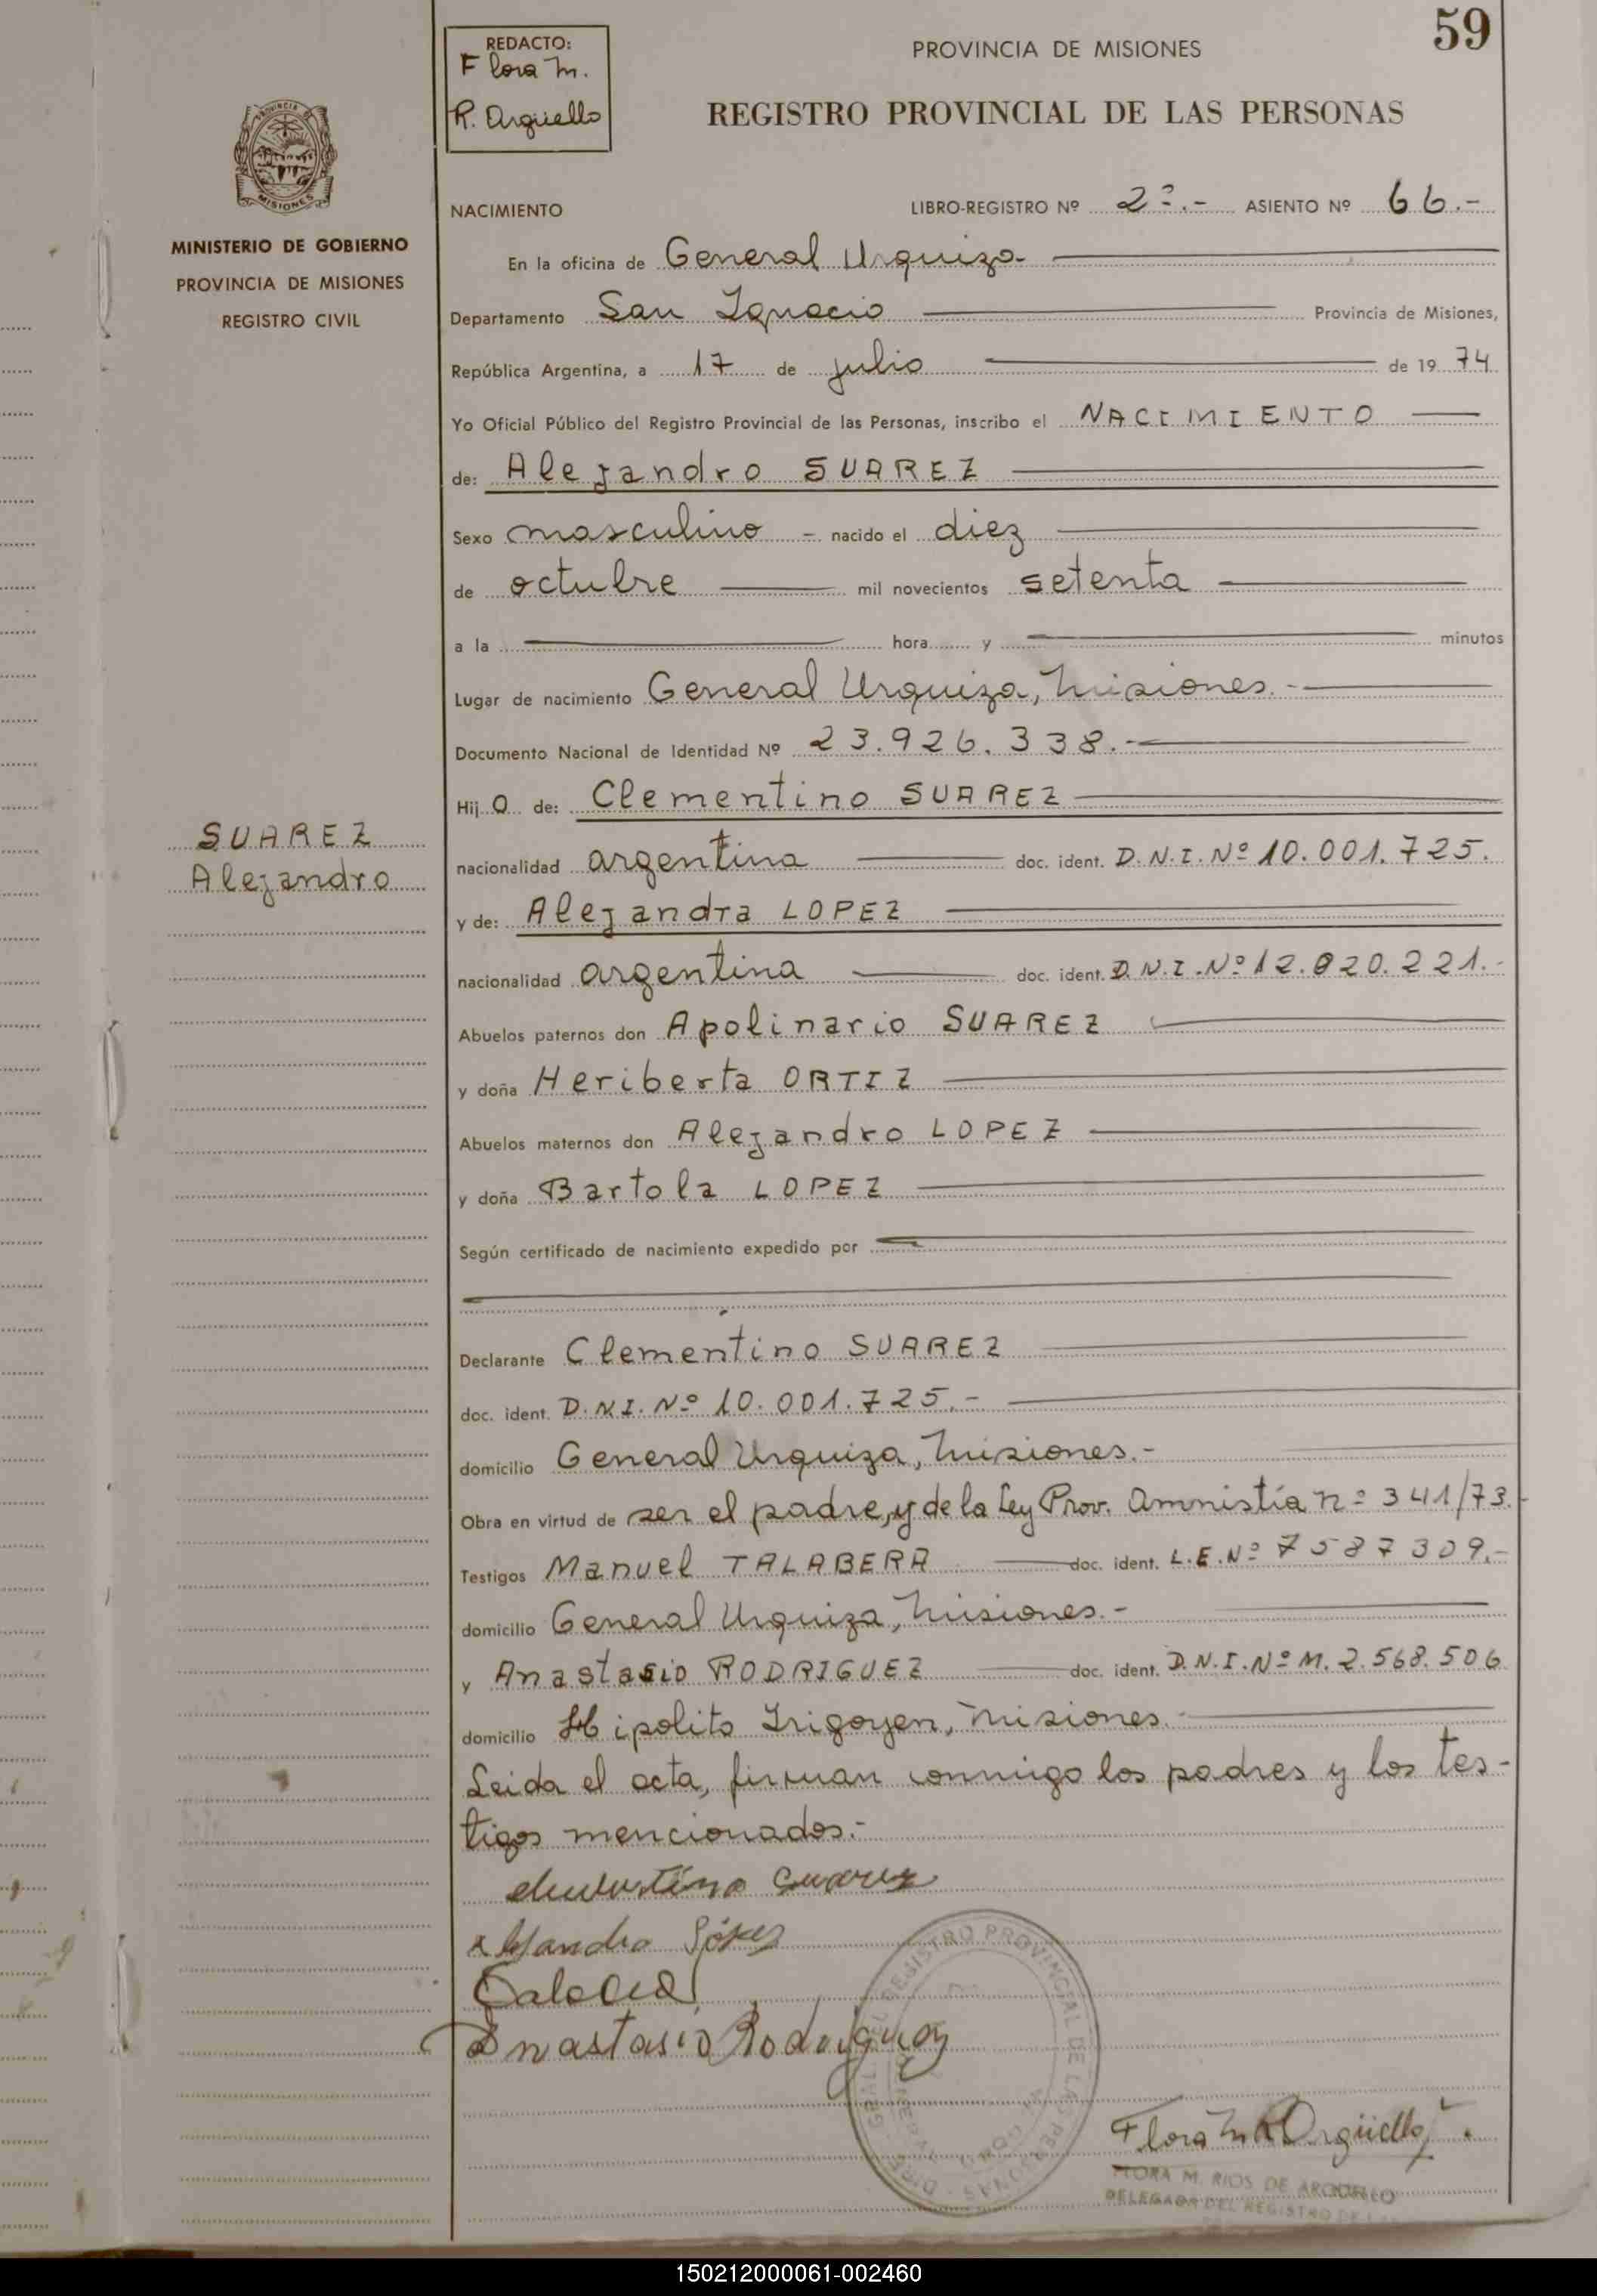 59
REDACTO:
Flora M.
R. Argüello
PROVINCIA DE MISIONES
REGISTRO PROVINCIAL DE LAS PERSONAS
PROVINCIA
MISIONES
MINISTERIO DE GOBIERNO
PROVINCIA DE MISIONES
REGISTRO CIVIL
NACIMIENTO LIBRO-REGISTRO Nº 2º.- ASIENTO Nº 66.-
En la oficina de General Urquiza
Departamento San Ignacio Provincia de Misiones,
República Argentina, a 17 de julio de 1974
Yo Oficial Público del Registro Provincial de las Personas, inscribo el NACIMIENTO
de: Alejandro SUAREZ
Sexo masculino - nacido el diez
de octubre mil novecientos setenta
a la hora y minutos
Lugar de nacimiento General Urquiza, Misiones.-
Documento Nacional de Identidad Nº 23.926.338.-
Hij o de: Clementino SUAREZ
SUAREZ
Alejandro
nacionalidad argentina doc. ident. D.N.I. Nº 10.001.725.
y de: Alejandra LOPEZ
nacionalidad argentina doc. ident. D.N.I. Nº 12.020.221.-
Abuelos paternos don Apolinario SUAREZ
y doña Heriberta ORTIZ
Abuelos maternos don Alejandro LOPEZ
y doña Bartola LOPEZ
Según certificado de nacimiento expedido por
Declarante Clementino SUAREZ
doc. ident. D.N.I. Nº 10.001.725.-
domicilio General Urquiza, Misiones.-
Obra en virtud de ser el padre, y de la Ley Prov. Amnistía nº 341/73.-
Testigos Manuel TALABERA doc. ident. L.E. Nº 7587309.-
domicilio General Urquiza, Misiones.-
y Anastasio RODRIGUEZ doc. ident. D.N.I. Nº M. 2.568.506
domicilio Hipolito Irigoyen, Misiones.-
Leida el acta, firman conmigo los padres y los tes-
tigos mencionados.-
Clementino Suarez
Alejandra López
Anastasio Rodriguez
REGISTRO PROVINCIAL DE LAS PERSONAS
Flora M R Argüello
FLORA M. RIOS DE ARGUELLO
DELEGADA DEL REGISTRO DE LAS
150212000061-002460